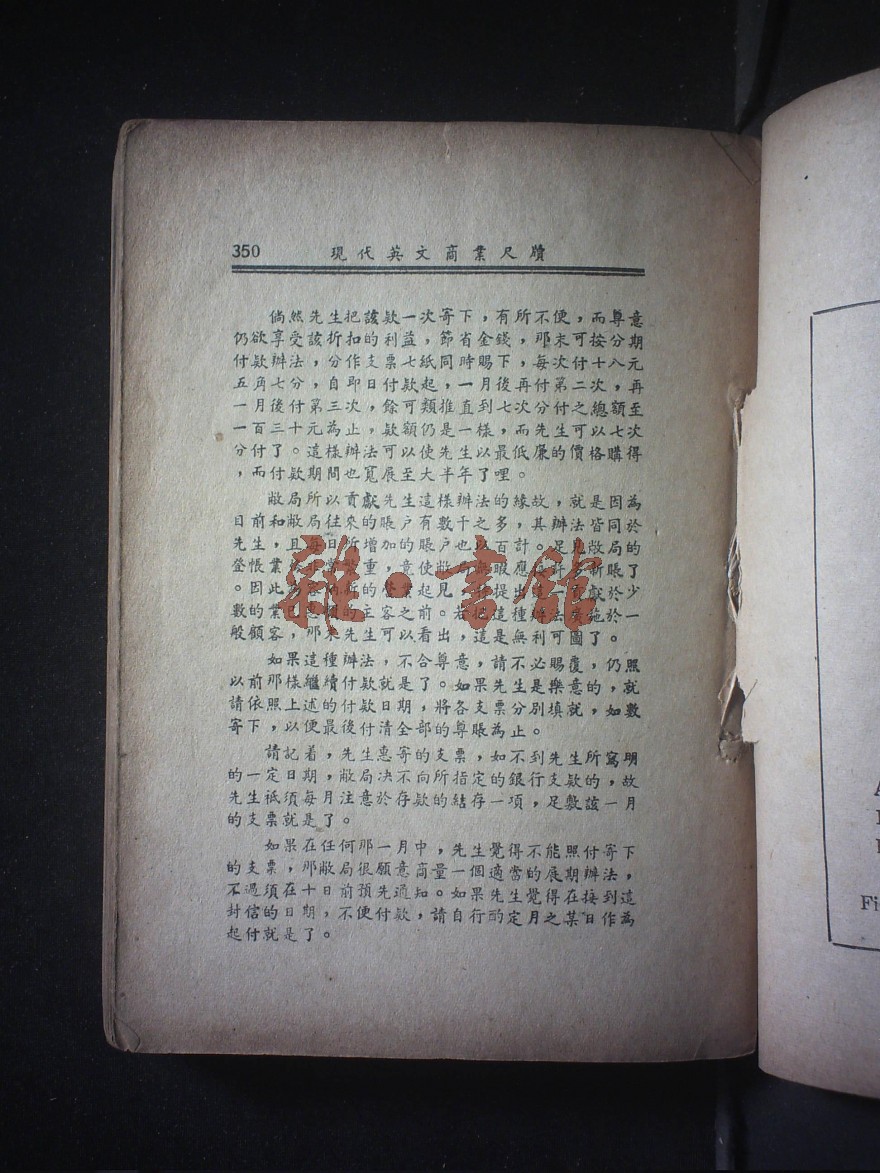 350 現代英文商業尺牘
倘然先生把該欵一次寄下，有所不便，而尊意
仍欲享受該折扣的利益，節省金錢，那末可按分期
付欵辦法，分作支票七紙同時賜下，每次付十八元
五角七分，自即日付欵起，一月後再付第二次，再
一月後付第三次，餘可類推直到七次分付之總額至
一百三十元為止，欵額仍是一樣，而先生可以七次
分付了。這樣辦法可以使先生以最低廉的價格購得
，而付欵期間也寬展至大半年了哩。
敝局所以貢獻先生這樣辦法的緣故，就是因為
目前和敝局往來的賬户有數千之多，其辦法皆同於
先生，且每日所增加的賬户也以百計。足見敝局的
登帳業務非常繁重，竟使敝局無暇應付許多新賬了
。因此為容納新的營業起見，特提出這種貢獻於少
數的業已惠顧的主客之前。若把這種辦法廣施於一
般顧客，那末先生可以看出，這是無利可圖了。
如果這種辦法，不合尊意，請不必賜覆，仍照
以前那樣繼續付欵就是了。如果先生是樂意的，就
請依照上述的付欵日期，將各支票分別填就，如數
寄下，以便最後付清全部的尊賬為止。
請記着，先生惠寄的支票，如不到先生所寫明
的一定日期，敝局决不向所指定的銀行支欵的，故
先生祗須每月注意於存欵的結存一項，足敷該一月
的支票就是了。
如果在任何那一月中，先生覺得不能照付寄下
的支票，那敝局很願意商量一個適當的展期辦法，
不過須在十日前預先通知。如果先生覺得在接到這
封信的日期，不便付欵，請自行酌定月之某日作為
起付就是了。
雜·書館
Fi